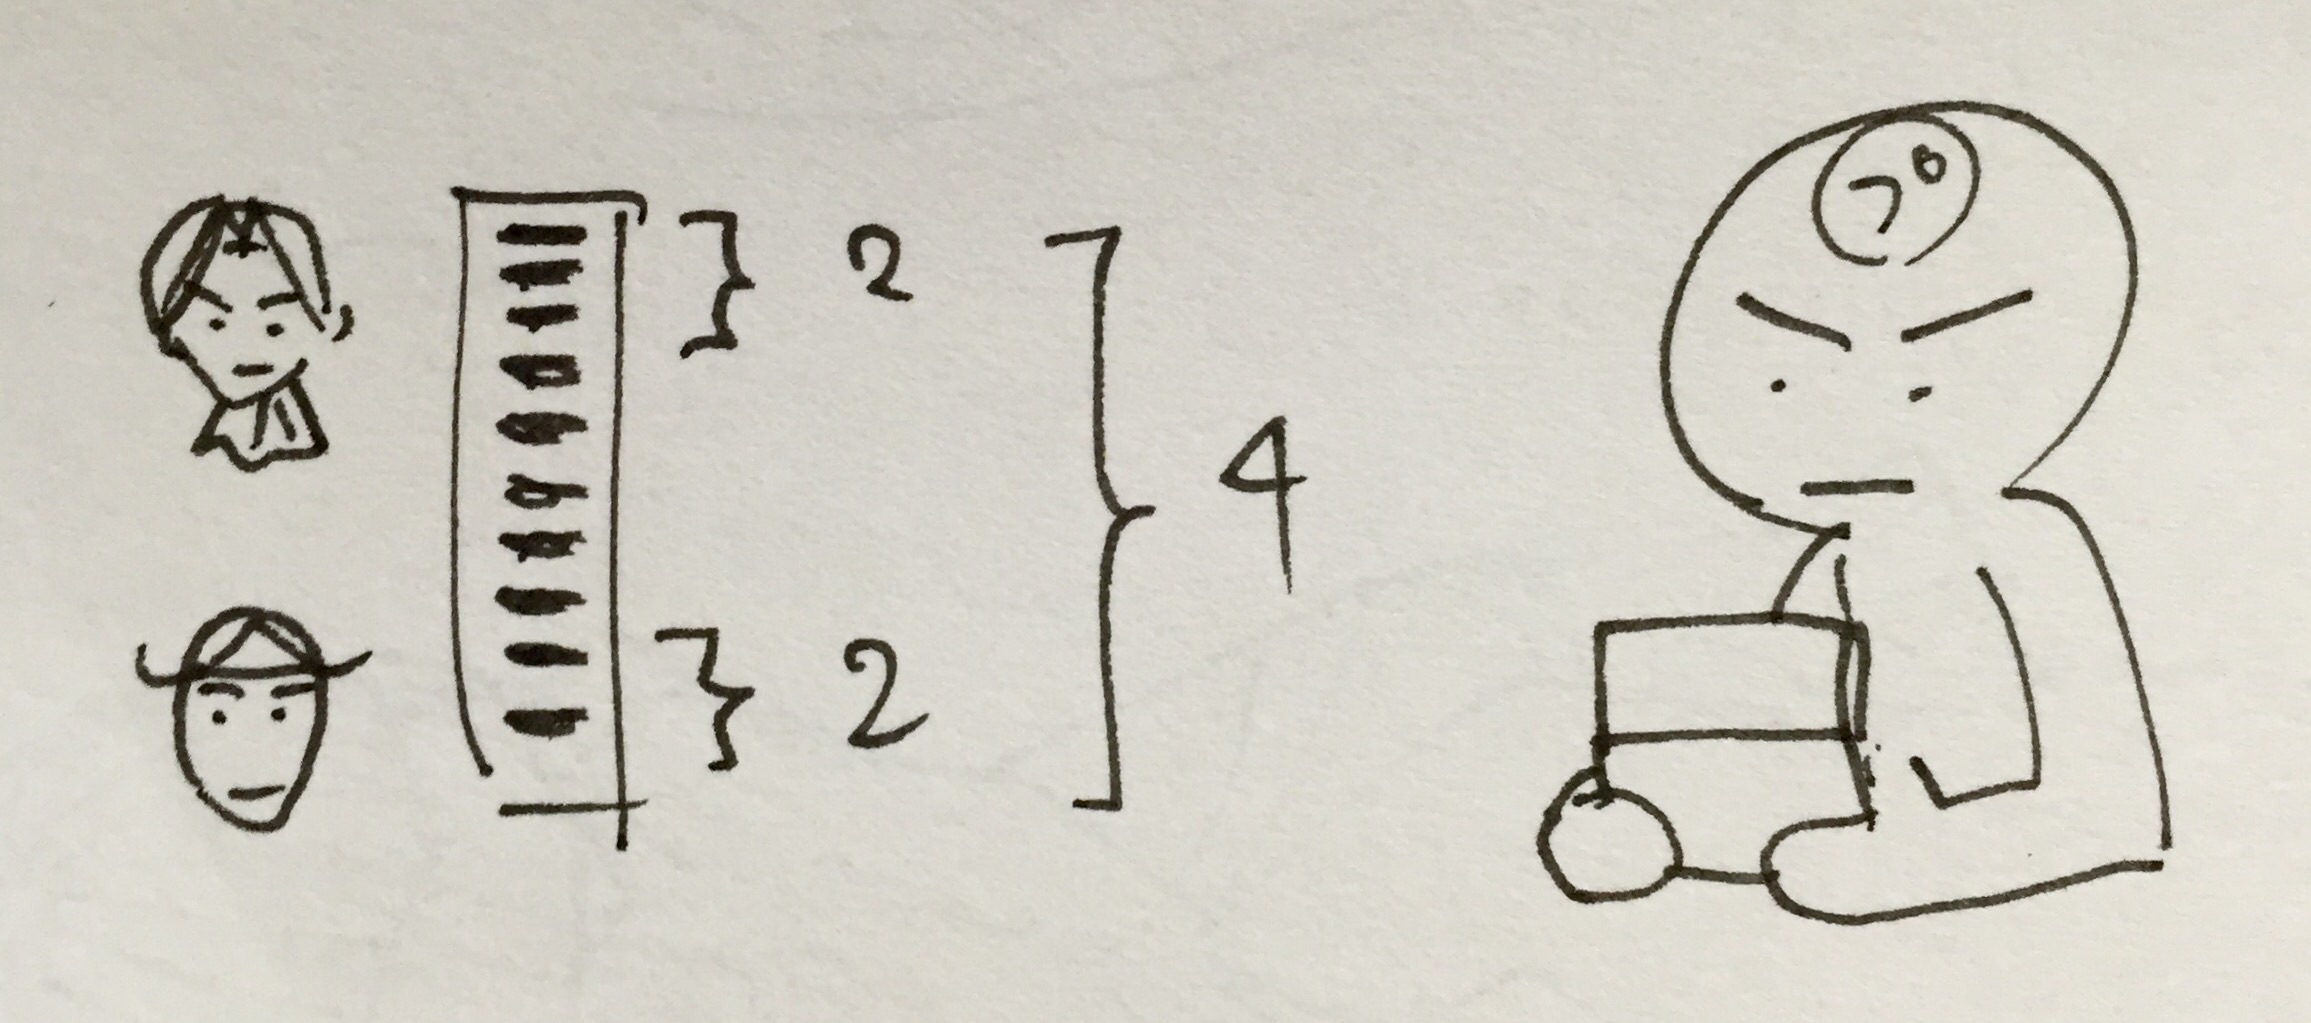 プ
2
4
2